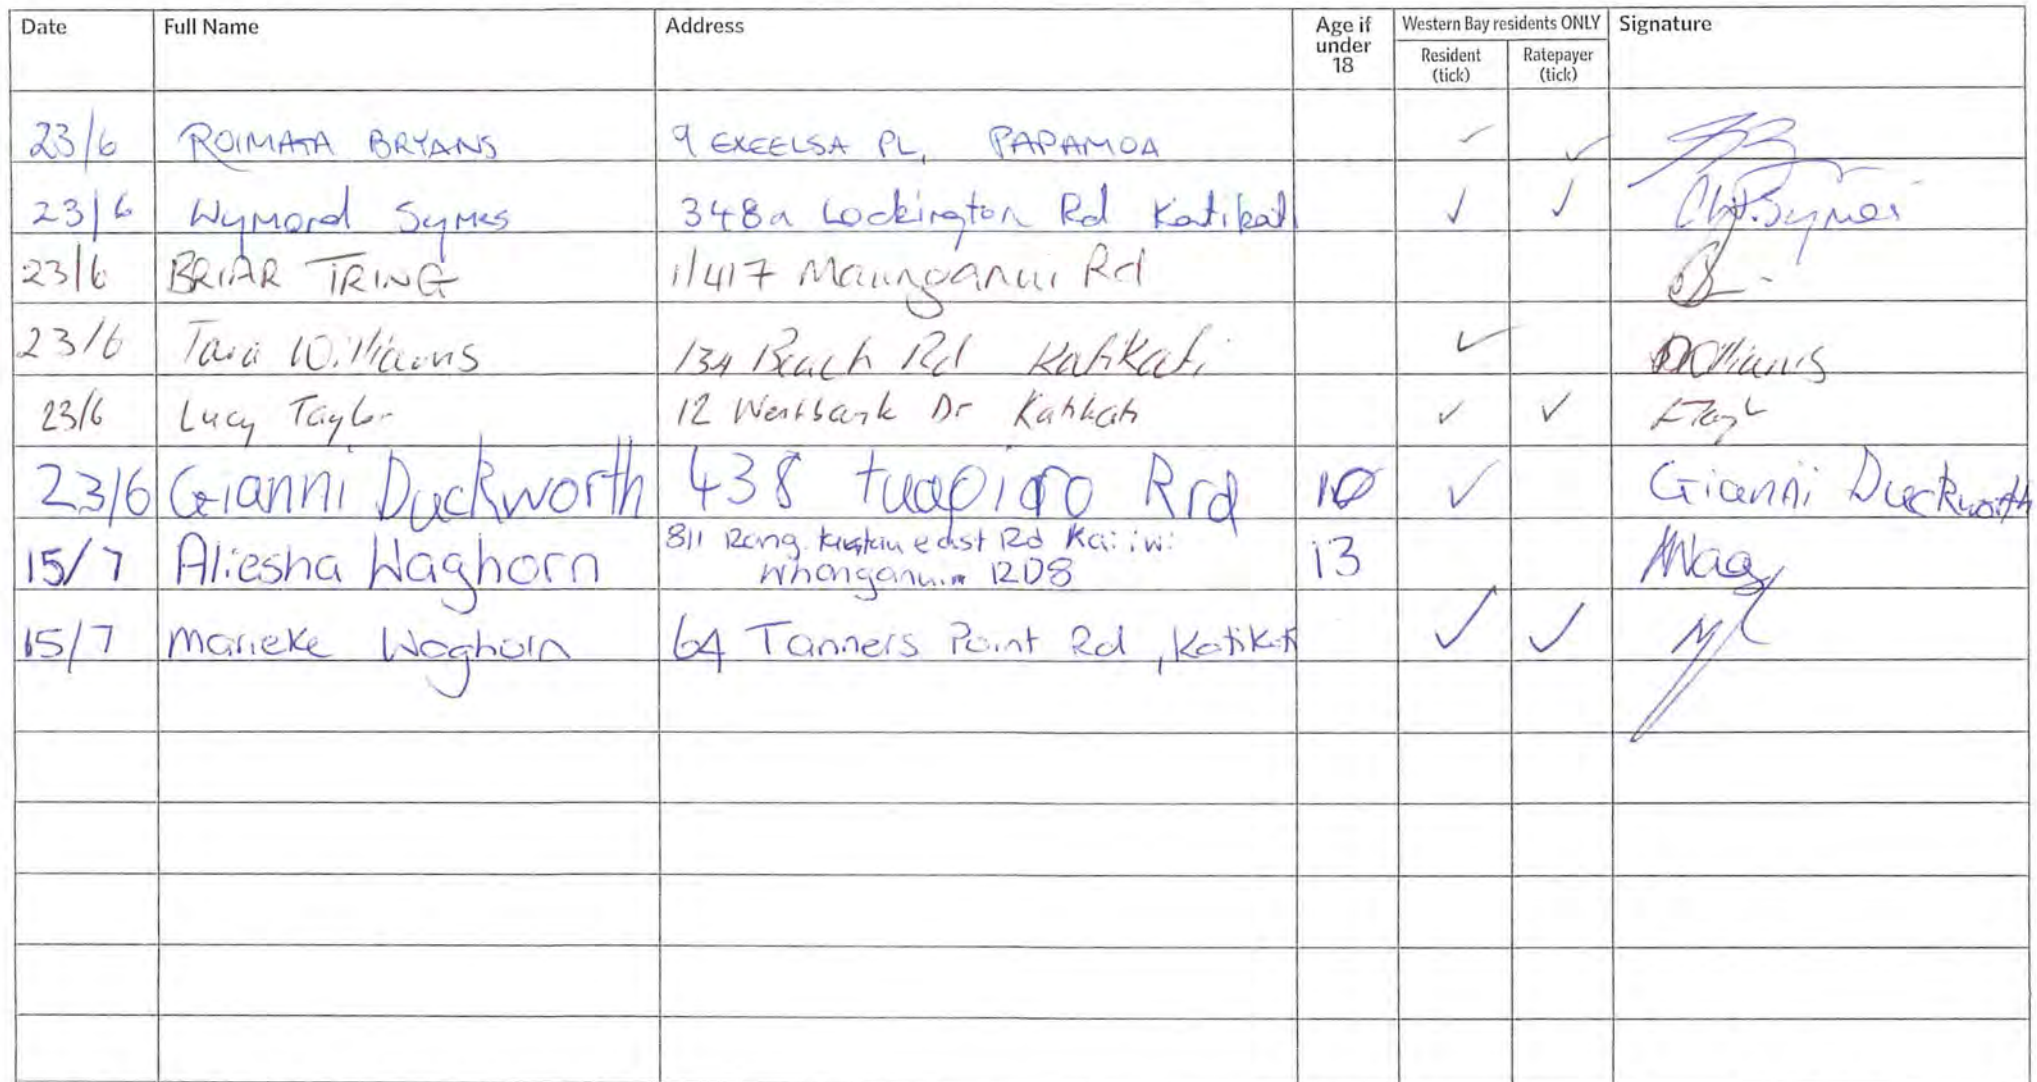 Date Full Name Address Age if under 18 Western Bay residents ONLY Resident (tick) Ratepayer (tick) Signature
23/6 ROIMATA BRYANS 9 EXCELSA PL, PAPAMOA ✓ ✓
23/6 Wymond Symes 348a Lockington Rd Katikati ✓ ✓
23/6 BRIAR TRING 1/417 Maunganui Rd
23/6 Tara Williams 134 Beach Rd Katikati ✓ Williams
23/6 Lucy Taylor 12 Westbank Dr Katikati ✓ ✓
23/6 Gianni Duckworth 438 tuapiro Rrd 10 ✓ Gianni Duckworth
15/7 Aliesha Waghorn 811 east Rd Kai iwi 13
Whanganui RD8
15/7 Marieke Waghorn 64 Tanners Point Rd, Katikati ✓ ✓